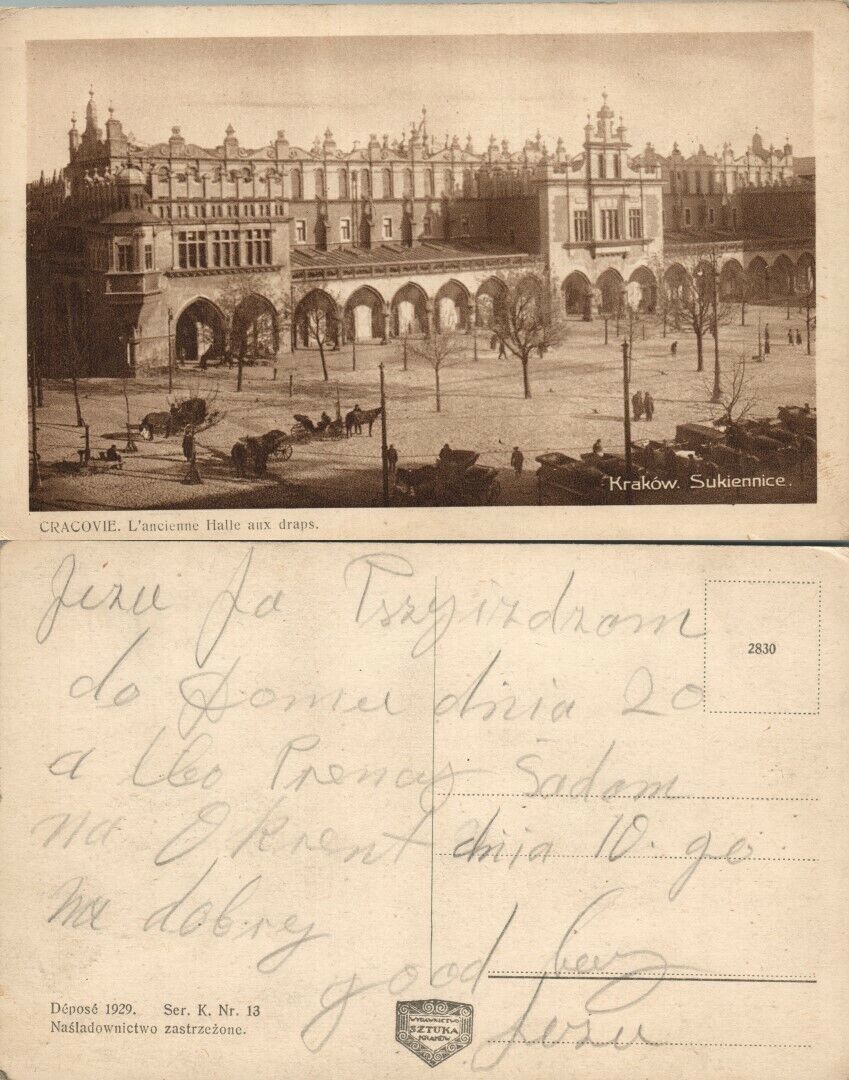 Kraków. Sukiennice.
CRACOVIE. L'ancienne Halle aux draps.
Jezu Ja Pszyizdzam
do Domu dnia 20
2830
a lbo Prency Siadam
na Okrent dnia 10. go
na dobrej
good bay
Jezu
Déposé 1929. Ser. K. Nr. 13
Naśladownictwo zastrzeżone.
WYDAWNICTWO
SZTUKA
KRAKÓW